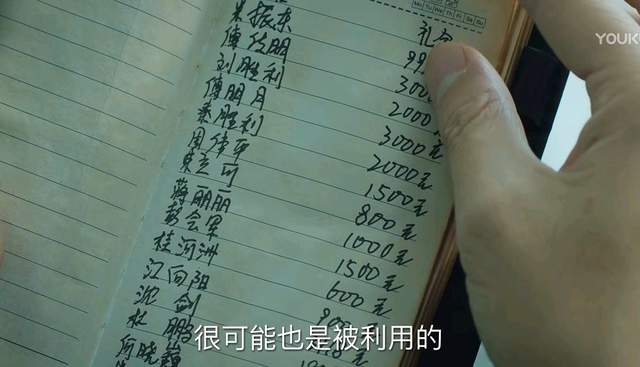 YOUKU
振东 礼金
傅 朋 99
刘胜利 3000
傅朋月 2000元
秦胜利 3000元
周伟平 2000元
立可 1500元
蒋丽丽 800元
彭会军 1000元
桂河洲 1500元
江向阳 600元
沈剑 900
林鹏
何晓巍
很可能也是被利用的